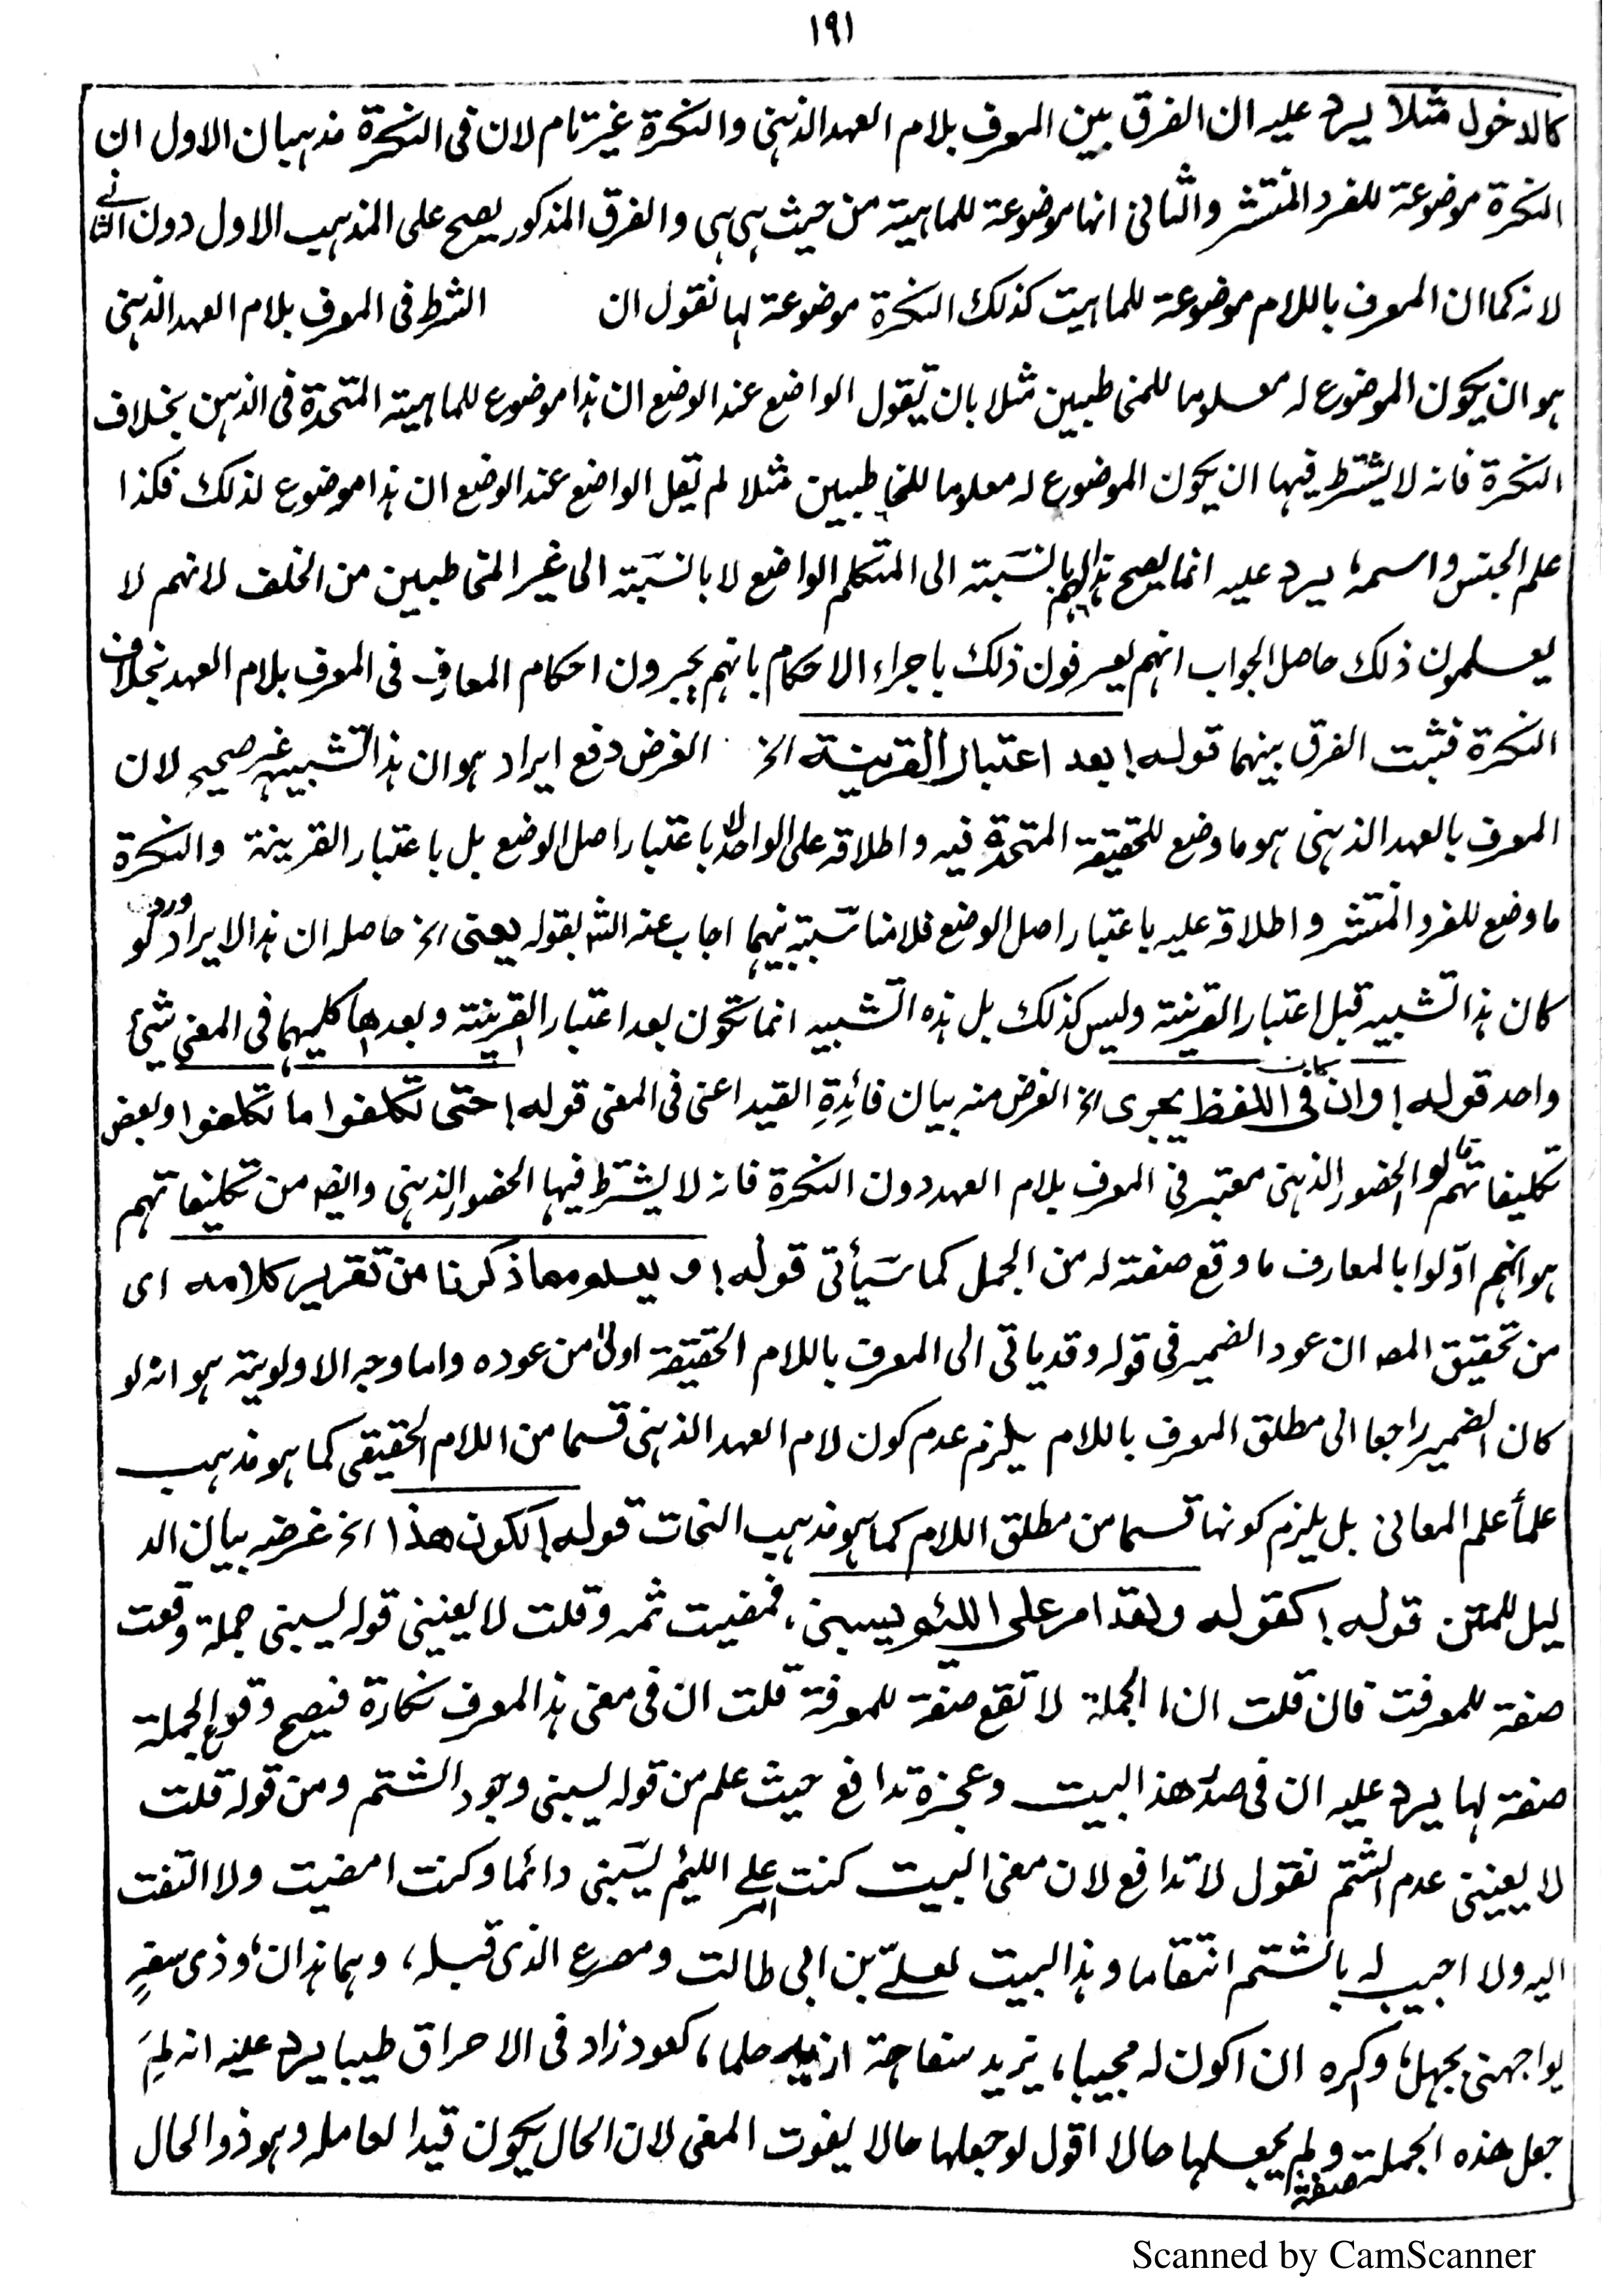 ١٩١
كالدخول مثلا يرد عليه ان الفرق بين المعرف بلام العهد الذهنى والنكرة غير تام لان فى النكرة مذهبان الاول ان
النكرة موضوعة للفرد المنتشر والثانى انها موضوعة للماهية من حيث هى هى والفرق المذكور يصح على المذهب الاول دون الثانى
لانه كما ان المعرف باللام موضوعة للماهيت كذلك النكرة موضوعة لها نقول ان الشرط فى المعرف بلام العهد الذهنى
هو ان يكون الموضوع له معلوما للمخاطبين مثلا بان يقول الواضع عند الوضع ان هذا موضوع للماهية المتحدة فى الذهن بخلاف
النكرة فانه لا يشترط فيها ان يكون الموضوع له معلوما للمخاطبين مثلا لم يقل الواضع عند الوضع ان هذا موضوع لذلك فكذا
علم الجنس واسمه، يرد عليه انما يصح هذا بالنسبة الى المتكلم الواضع لا بالنسبة الى غير المخاطبين من الخلف لانهم لا
يعلمون ذلك حاصل الجواب انهم يعرفون ذلك باجراء الاحكام بانهم يجرون احكام المعارف فى المعرف بلام العهد بخلاف
النكرة فثبت الفرق بينهما قوله؛ بعد اعتبار القرينة الخ الغرض دفع ايراد هو ان هذا التشبيه غير صحيح لان
المعرف بالعهد الذهنى هو ما وضع للحقيقة المتحدة فيه واطلاقه على الواحد لا باعتبار اصل الوضع بل باعتبار القرينة والنكرة
ما وضع للفرد المنتشر واطلاقه عليه باعتبار اصل الوضع فلا مناسبة بينهما اجاب عنه الش بقوله يعنى الخ حاصله ان هذا الايراد ورد لو
كان هذا تشبيه قبل اعتبار القرينة وليس كذلك بل هذه التشبيه انما تكون بعد اعتبار القرينة وبعدها كليهما فى المعنى شئ
واحد قوله؛ وان كان فى اللفظ يجرى الخ الغرض منه بيان فائدة القيد اعنى فى المعنى قوله؛ حتى تكلفوا ما تكلفوا وبعض
تكليفاتهم قالوا الحضور الذهنى معتبر فى المعرف بلام العهد دون النكرة فانه لا يشترط فيها الحضور الذهنى وايضه من تكليفاتهم
هو انهم اوّلوا بالمعارف ما وقع صفته له من الجمل كما سيأتى قوله؛ ويعلم مما ذكرنا من تقرير كلامه اى
من تحقيق المص ان عود الضمير فى قوله وقد ياتى الى المعرف باللام الحقيقة اولى من عوده واما وجه الاولوية هو انه لو
كان الضمير راجعا الى مطلق المعرف باللام يلزم عدم كون لام العهد الذهنى قسما من اللام الحقيقى كما هو مذهب
علمأ علم المعانى بل يلزم كونها قسما من مطلق اللام كما هو مذهب النحات قوله؛ لكون هذا الخ غرضه بيان الد
ليل للمتن قوله؛ كقوله ولقد امر على اللئيم يسبنى، فمضيت ثمه وقلت لا يعنينى قوله يسبنى جملة وقعت
صفة للمعرفت فان قلت ان الجملة لا تقع صفة للمعرفة قلت ان فى معنى هذا المعرف نكارة فيصح وقوع الجملة
صفة لها يرد عليه ان فى صدر هذا البيت وعجزه تدافع حيث علم من قوله يسبنى وجود الشتم ومن قوله قلت
لا يعنينى عدم الشتم نقول لا تدافع لان معنى البيت كنت امر على اللئيم يسّبنى دائما وكنت امضيت ولا التفت
اليه ولا اجيب له بالشتم انتقاما وهذا البيت لعلىّ بن ابى طالب ومصرع الذى قبله، وهما هذان، وذى سفهٍ
يواجهنى بجهل، واكره ان اكون له مجيبا، يزيد سفاهة ازيد حلما، كعود زاد فى الاحراق طيبا يرد عليه انه لِمَ
جعل هذه الجملة صفة ولم يجعلها حالا اقول لو جعلها حالا يفوت المعنى لان الحال يكون قيدا لعامله وهو ذو الحال
Scanned by CamScanner